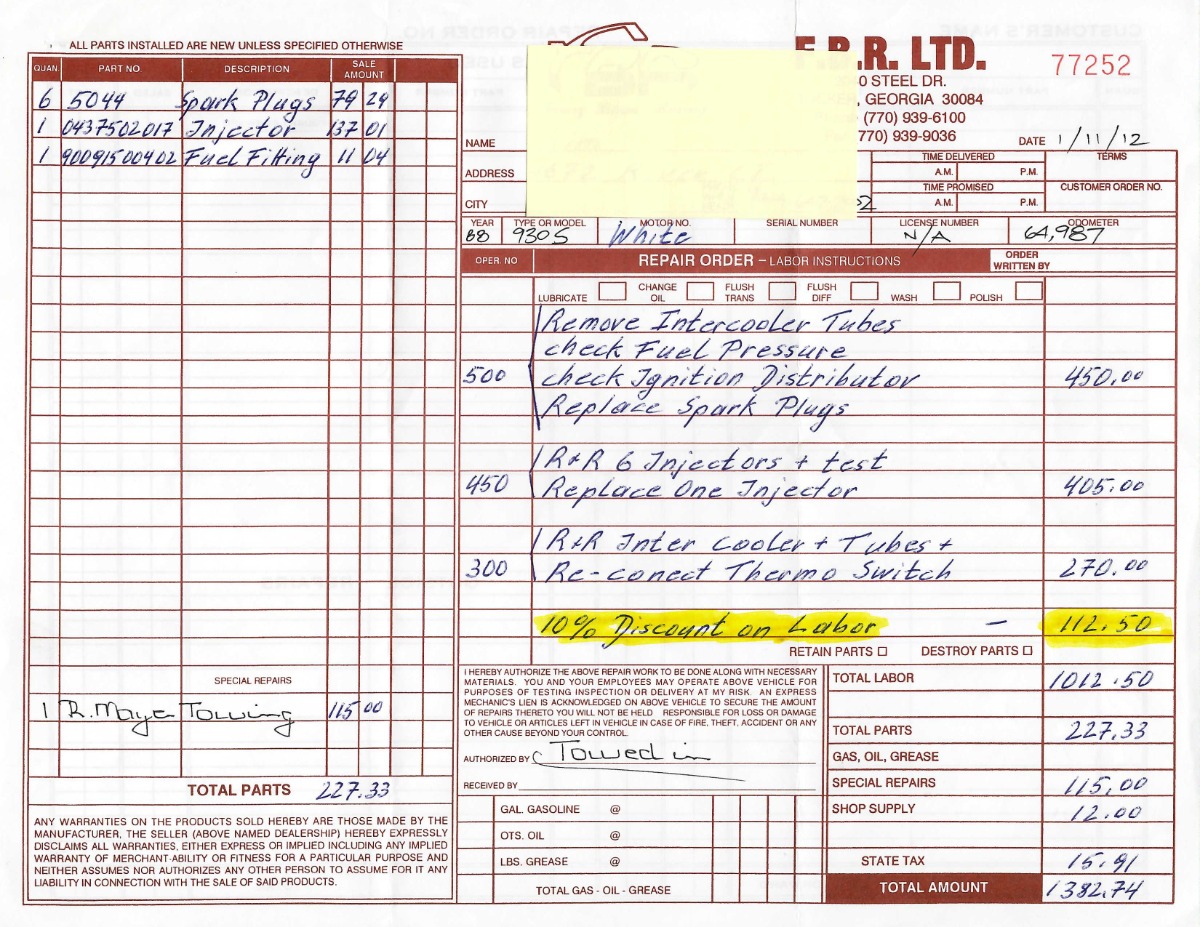 ALL PARTS INSTALLED ARE NEW UNLESS SPECIFIED OTHERWISE
QUAN PART NO. DESCRIPTION SALE AMOUNT
6 5044 Spark Plugs 79 29
1 0437502017 Injector 137 01
1 90091500402 Fuel Fitting 11 04
SPECIAL REPAIRS
1 Towing 115 00
TOTAL PARTS 227.33
ANY WARRANTIES ON THE PRODUCTS SOLD HEREBY ARE THOSE MADE BY THE
MANUFACTURER, THE SELLER (ABOVE NAMED DEALERSHIP) HEREBY EXPRESSLY
DISCLAIMS ALL WARRANTIES, EITHER EXPRESS OR IMPLIED INCLUDING ANY IMPLIED
WARRANTY OF MERCHANT-ABILITY OR FITNESS FOR A PARTICULAR PURPOSE AND
NEITHER ASSUMES NOR AUTHORIZES ANY OTHER PERSON TO ASSUME FOR IT ANY
LIABILITY IN CONNECTION WITH THE SALE OF SAID PRODUCTS.
.R. LTD.
77252
0 STEEL DR.
, GEORGIA 30084
(770) 939-6100
770) 939-9036
DATE 1/11/12
NAME
ADDRESS
CITY
TIME DELIVERED
A.M. P.M.
TERMS
TIME PROMISED
A.M. P.M.
CUSTOMER ORDER NO.
YEAR TYPE OR MODEL MOTOR NO. SERIAL NUMBER LICENSE NUMBER ODOMETER
88 930S White N/A 64,987
OPER. NO REPAIR ORDER – LABOR INSTRUCTIONS ORDER WRITTEN BY
LUBRICATE CHANGE OIL FLUSH TRANS FLUSH DIFF WASH POLISH
Remove Intercooler Tubes
check Fuel Pressure
500 check Ignition Distributor 450.00
Replace Spark Plugs
R+R 6 Injectors + test
450 Replace One Injector 405.00
R+R Inter cooler + Tubes +
300 Re-conect Thermo Switch 270.00
10% Discount on Labor – 112.50
RETAIN PARTS DESTROY PARTS
I HEREBY AUTHORIZE THE ABOVE REPAIR WORK TO BE DONE ALONG WITH NECESSARY
MATERIALS. YOU AND YOUR EMPLOYEES MAY OPERATE ABOVE VEHICLE FOR
PURPOSES OF TESTING INSPECTION OR DELIVERY AT MY RISK. AN EXPRESS
MECHANIC'S LIEN IS ACKNOWLEDGED ON ABOVE VEHICLE TO SECURE THE AMOUNT
OF REPAIRS THERETO YOU WILL NOT BE HELD RESPONSIBLE FOR LOSS OR DAMAGE
TO VEHICLE OR ARTICLES LEFT IN VEHICLE IN CASE OF FIRE, THEFT, ACCIDENT OR ANY
OTHER CAUSE BEYOND YOUR CONTROL.
AUTHORIZED BY Towed in
RECEIVED BY
GAL. GASOLINE @
QTS. OIL @
LBS. GREASE @
TOTAL GAS - OIL - GREASE
TOTAL LABOR 1012.50
TOTAL PARTS 227.33
GAS, OIL, GREASE
SPECIAL REPAIRS 115.00
SHOP SUPPLY 12.00
STATE TAX 15.91
TOTAL AMOUNT 1382.74